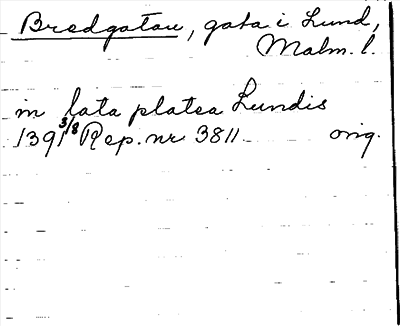 Bredgatan, gata i Lund,
Malm. l.
in lata platea Lundis
1391 3/8 Rep. nr 3811 orig.